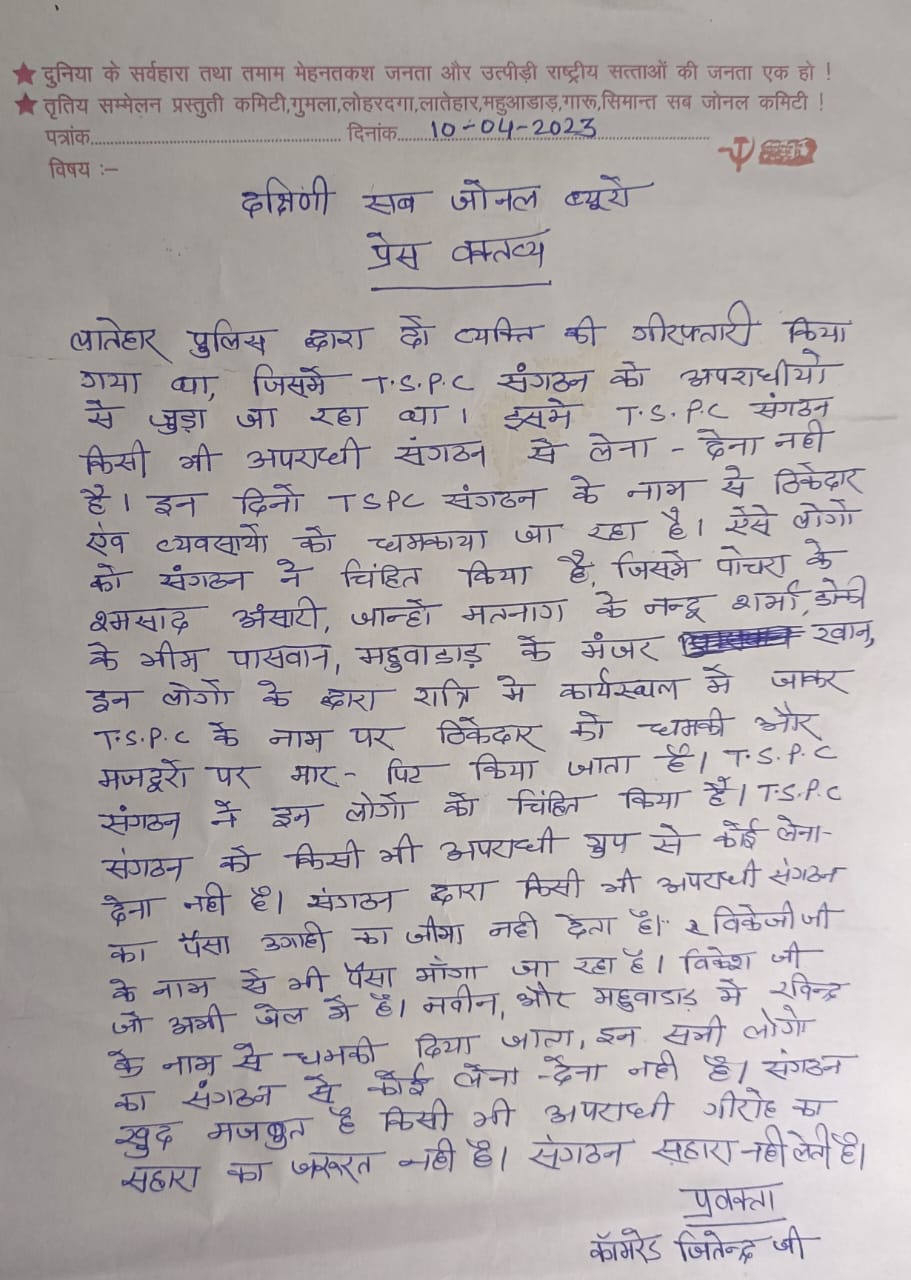 ★ दुनिया के सर्वहारा तथा तमाम मेहनतकश जनता और उत्पीड़ी राष्ट्रीय सत्ताओं की जनता एक हो !
★ तृतिय सम्मेलन प्रस्तुती कमिटी,गुमला,लोहरदगा,लातेहार,महुआडाड़,गारू,सिमान्त सब जोनल कमिटी !
पत्रांक.......................................... दिनांक.....10-04-2023......................
विषय :–
दक्षिणी सब जोनल ब्यूरो
प्रेस वक्तव्य
लातेहार पुलिस द्वारा दो व्यक्ति की गीरफ्तारी किया
गया था, जिसमें T.S.P.C संगठन को अपराधीयो
से जुड़ा जा रहा था। इसमे T.S.P.C संगठन
किसी भी अपराधी संगठन से लेना - देना नही
है। इन दिनो TSPC संगठन के नाम से ठिकेदार
एंव व्यवसायी को धमकाया जा रहा है। ऐसे लोगो
को संगठन ने चिंहित किया है, जिसमे पोचरा के
श्मसाद अंसारी, जान्हो मतनाग के नन्दू शर्मा,
के भीम पासवान, महुवाडाड़ के मंजर खान,
इन लोगो के द्वारा रात्रि मे कार्यस्थल में जाकर
T.S.P.C के नाम पर ठिकेदार को धमकी और
मजदुरो पर मार - पिट किया जाता है। T.S.P.C
संगठन ने इन लोगो को चिंहित किया है। T.S.P.C
संगठन को किसी भी अपराधी ग्रुप से कोई लेना-
देना नही है। संगठन द्वारा किसी भी अपराधी संगठन
का पैसा उगाही का जीमा नही देता है। विकेजी जी
के नाम से भी पैसा माँगा जा रहा है। विकेश जी
जो अभी जेल में है। नवीन, और महुवाडाड़ मे रविन्द्र
के नाम से धमकी दिया जाता, इन सभी लोगो
का संगठन से कोई लेना -देना नही है। संगठन
खुद मजबुत है किसी भी अपराधी गीरोह का
सहारा का जरूरत नही है। संगठन सहारा नही लेती है।
प्रवक्ता
कॉमरेड जितेन्द्र जी